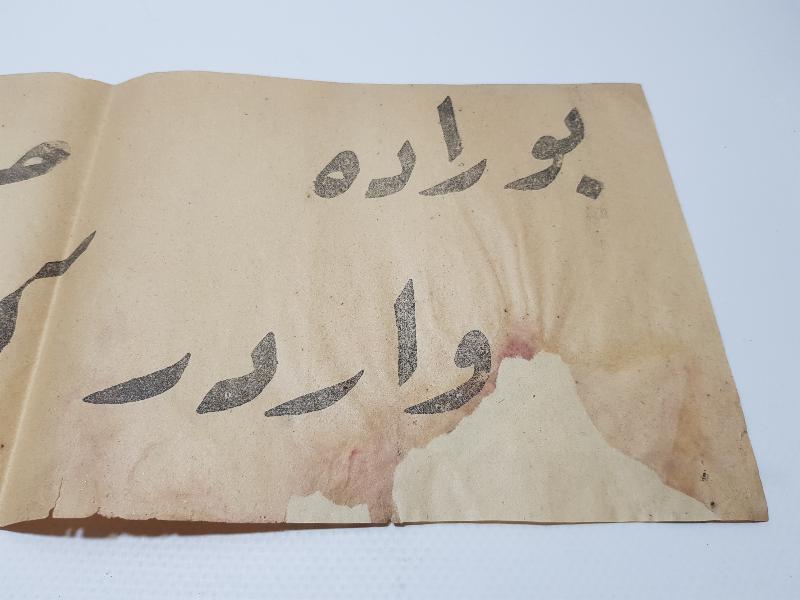 بوراده
واردر